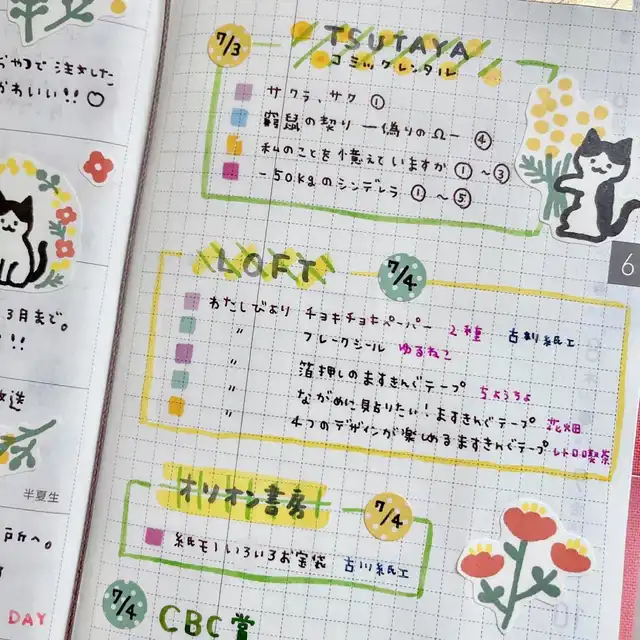 おやるで注文した
かわいい!!♡
3月まで。
!!
放送
半夏生
戸所へ。
DAY
7/3 TSUTAYA
コミックレンタル
サクラ、サク ①
窮鼠の契り ー偽りのΩー ④
私のことを憶えていますか ①～③
-50kgのシンデレラ ①～⑤
6
LOFT 7/4
わたしびより チョキチョキペーパー 2種 古川紙工
〃 フレークシール ゆるねこ
〃 箔押しのますきんぐテープ ちょうちょ
〃 ながめに貼りたい!ますきんぐテープ 花畑
〃 4つのデザインが楽しめるますきんぐテープ レトロ喫茶
オリオン書房 7/4
紙モノいろいろお宝袋 古川紙工
7/4 CBC賞